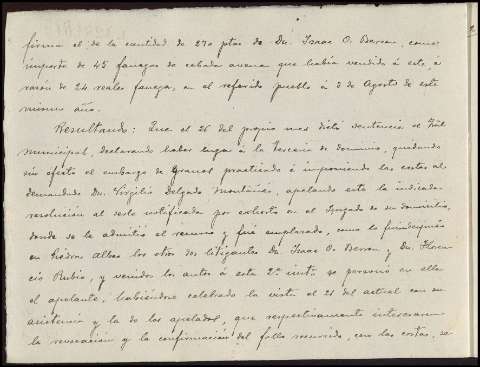 firma el de la cantidad de 270 ptas de Dn. Isaac O. Berron, como
importe de 45 fanegas de cebada avena que habia vendido á este, á
razón de 24 reales fanega, en el referido pueblo á 3 de Agosto de este
mismo año.
Resultando: Que el 26 del propio mes dictó sentencia el Trbl
municipal, declarando haber lugar á la tercería de dominio, quedando
sin efecto el embargo de granos practicado é imponiendo las costas al
demandado Dn. Virgilio Delgado Montánes, apelando este la indicada
resolución al serle notificada por exhorto en el Juzgado de su domicilio,
donde se le admitió el recurso y fué emplazado, como lo fueron
en Piedras Albas los otros dos litigantes Dn. Isaac O. Berron y Dn. Floren
cio Rubio, y venidos los autos á esta 2ª insta se personó en ella
el apelante, habiéndose celebrado la vista el 21 del actual con su
asistencia y la de los apelados, que respectivamente interesaron
la revocación y la confirmación del fallo recurrido, con las costas, se